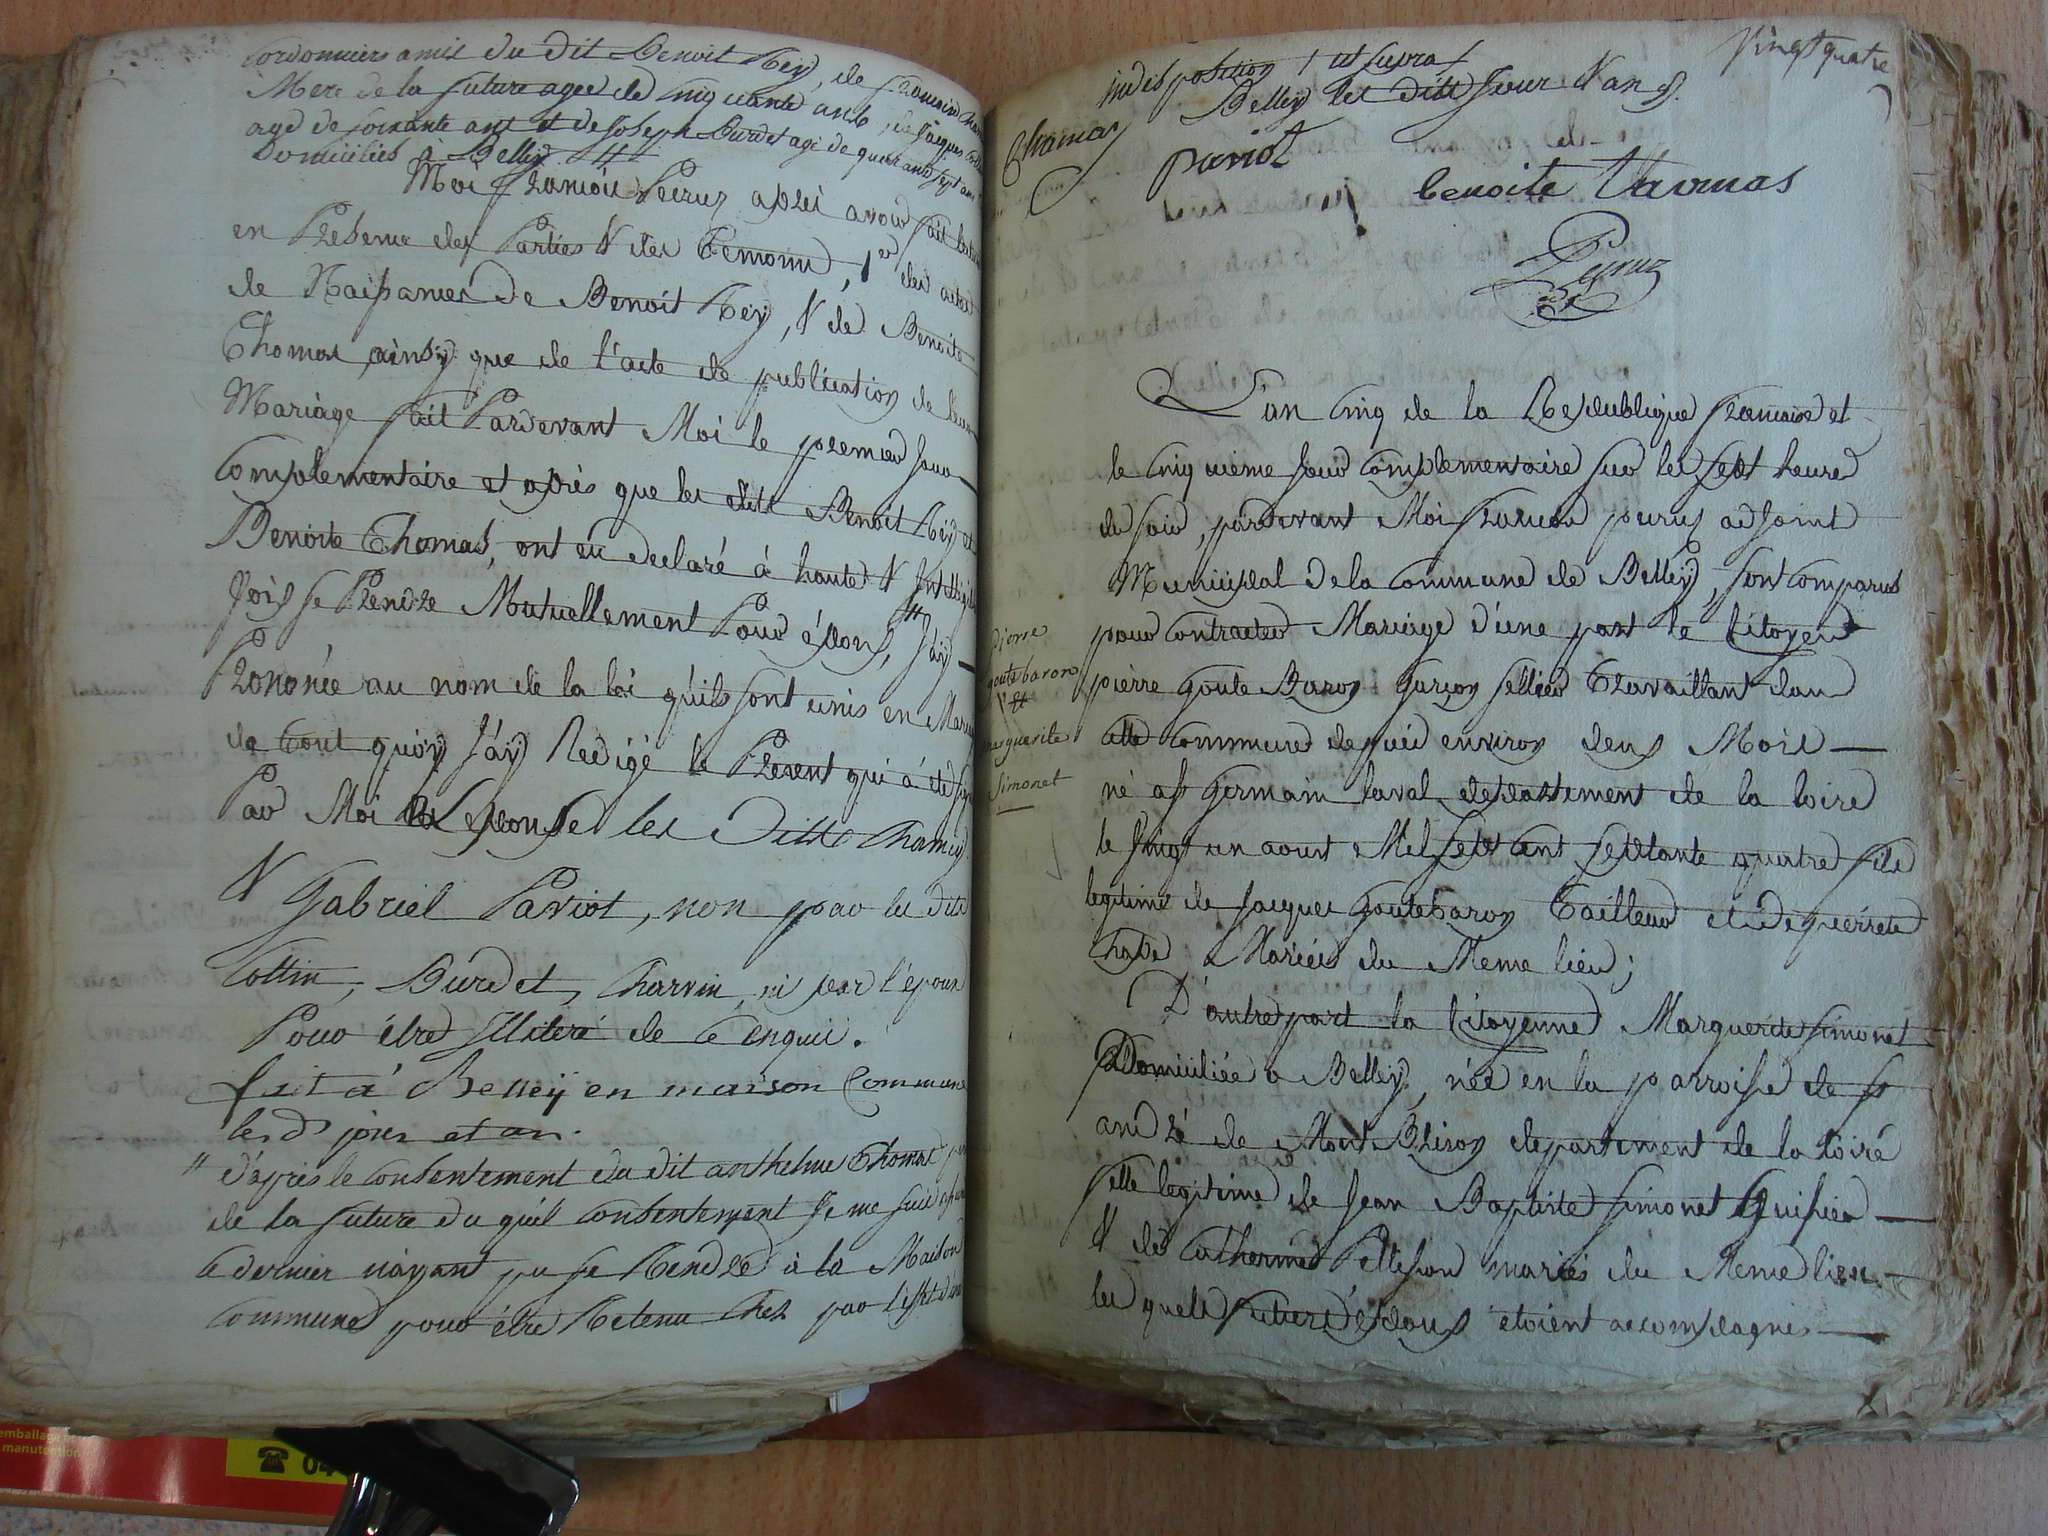 Cordonniers amis du dit Benoit Rey, de
Mere de la future agée de Cinquante ans, de Jacques
agé de soixante ans et de Joseph Burdet agé de quarante sept ans
Domiciliés à Belley #
Moi François Peiruz après avoir fait lecture
en Présence des Parties & des Témoins, 1er des actes
de Naissances de Benoit Rey, & de Benoite
Thomas, ainsy que de l'acte de publication de leur
Mariage fait Pardevant Moi le premier Jour
Complementaire et après que les dits Benoit Rey et
Benoite Thomas, ont eü declaré à haute & Intelligible
Voix se Prendre Mutuellement Pour époux, # J'ay
Prononcé au nom de la loi qu'ils sont unis en Mariage
de tout quoy J'ay Redigé le Present qui à eté signé
Par Moi l'Epouse les Dits Chamay
& Gabriel Paviot, non par les dits
Cottin, Burdet, Charvin, ni par l'époux
Pour être Illiteré de ce enquis.
fait à Belleÿ en maison Commune
les ds jour et an.
# d'après le Consentement du dit anthelme Thomas père
de la future du quel Consentement Je me suis
ce dernier n'ayant pu se Rendre à la Maison
Commune pour être Retenu Chez par
Vingt quatre
indisposition
Belley les dits Jour & an
Chamay
Paviot
benoite thomas
Peyruz
L'an Cinq de la Republique francaise et
le Cinquieme Jour Complementaire sur les sept heures
du soir, pardevant Moi François peiruz adjoint
Municipal de la Commune de Belley, sont comparus
pour Contracter Mariage d'une part le Citoyen
pierre Goute Baron Garçon sellier Travaillant dans
cette Commune depuis environ deux Mois
né à st Germain laval departement de la loire
le vingt un aoust Mil sept cent septante quatre fils
legitime de Jacques Goutebaron Tailleur et de pierrete
Mariés du Meme lieu;
D'autre part la Citoyenne Marguerite Simonet
Domiciliée a Belley, née en la parroisse de st
andré de Mont Brison departement de la loire
fille legitime de Jean Baptiste Simonet Huissier
& de Catherine Pellisson mariés du Meme lieu
les quels futures époux etoient accompagnés
Pierre
goutebaron
&
marguerite
Simonet
emballage
manutention
04